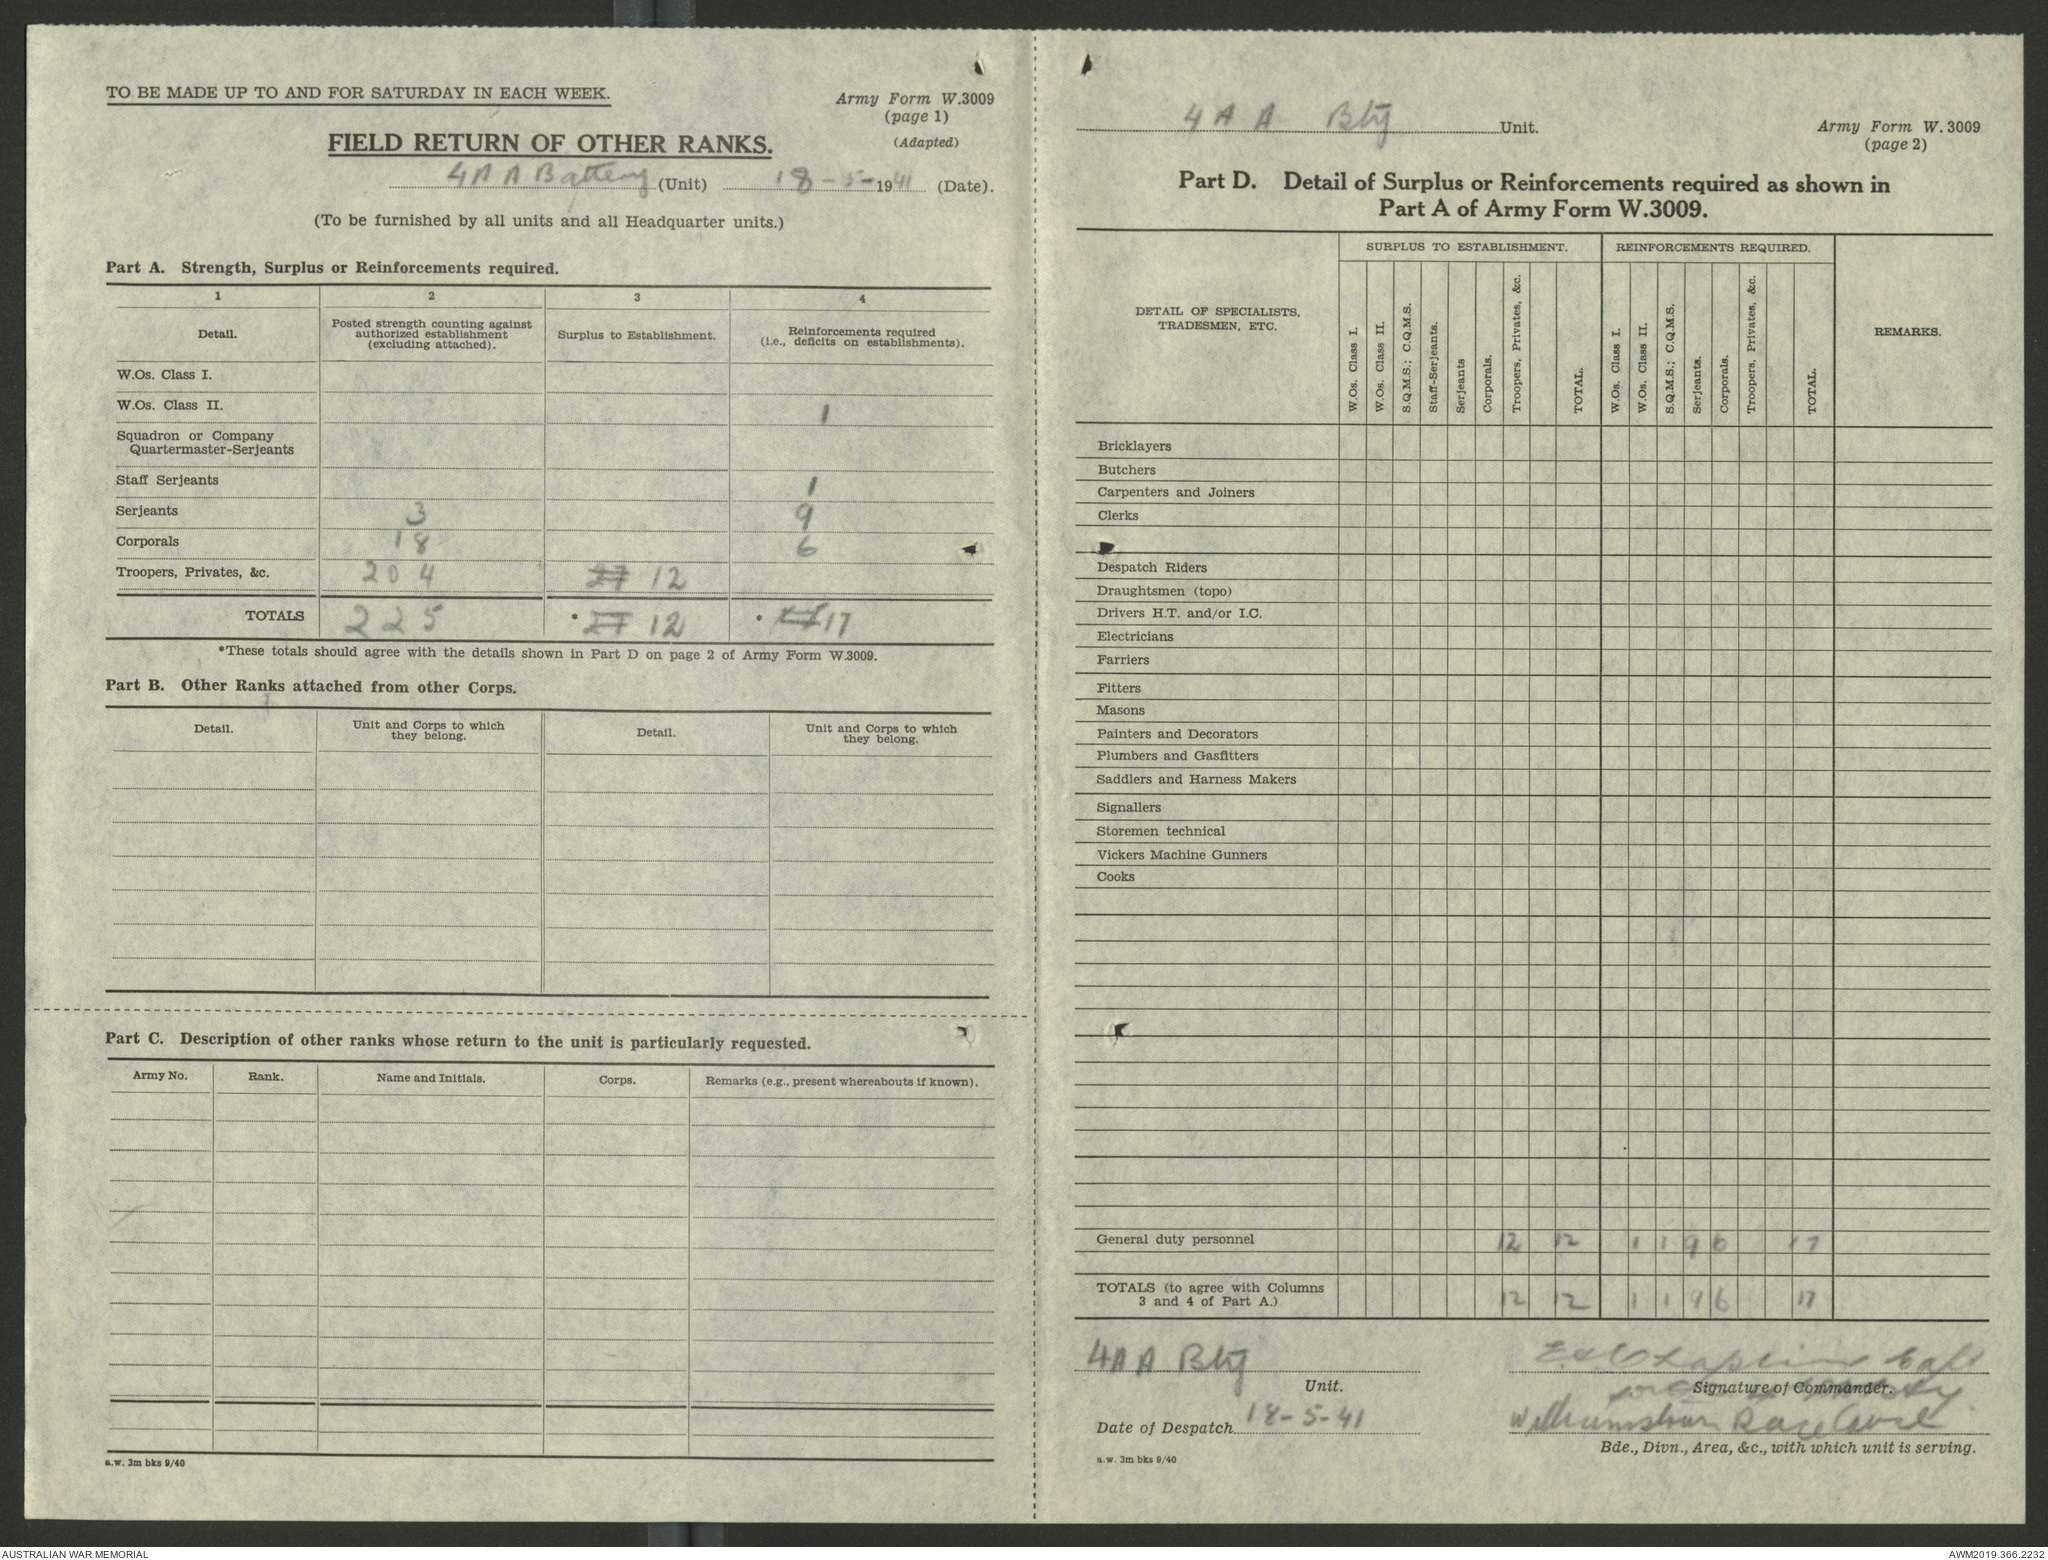 TO BE MADE UP TO AND FOR SATURDAY IN EACH WEEK.
Army Form W.3009
(page 1)
(Adapted)
FIELD RETURN OF OTHER RANKS.
4 A A Battery (Unit) 18-5-1941 (Date).
(To be furnished by all units and all Headquarter units.)
Part A. Strength, Surplus or Reinforcements required.
1 2 3 4
Detail.
Posted strength counting against
authorized establishment
(excluding attached).
Surplus to Establishment.
Reinforcements required
(i.e., deficits on establishments).
W.Os. Class I.
W.Os. Class II. 1
Squadron or Company
Quartermaster-Serjeants
Staff Serjeants 1
Serjeants 3 9
Corporals 18 6
Troopers, Privates, &c. 204 27 12
TOTALS 225 * 27 12 * 17
*These totals should agree with the details shown in Part D on page 2 of Army Form W.3009.
Part B. Other Ranks attached from other Corps.
Detail.
Unit and Corps to which
they belong.
Detail.
Unit and Corps to which
they belong.
Part C. Description of other ranks whose return to the unit is particularly requested.
Army No. Rank. Name and Initials. Corps. Remarks (e.g., present whereabouts if known).
a.w. 3m bks 9/40
4 A A Bty Unit.
Army Form W. 3009
(page 2)
Part D. Detail of Surplus or Reinforcements required as shown in
Part A of Army Form W.3009.
DETAIL OF SPECIALISTS,
TRADESMEN, ETC.
SURPLUS TO ESTABLISHMENT.
W.Os. Class I.
W.Os. Class II.
S.Q.M.S.; C.Q.M.S.
Staff-Serjeants.
Serjeants
Corporals.
Troopers, Privates, &c.
TOTAL.
REINFORCEMENTS REQUIRED.
W.Os. Class I.
W.Os. Class II.
S.Q.M.S.; C.Q.M.S.
Serjeants.
Corporals.
Troopers, Privates, &c.
TOTAL.
REMARKS.
Bricklayers
Butchers
Carpenters and Joiners
Clerks
Despatch Riders
Draughtsmen (topo)
Drivers H.T. and/or I.C.
Electricians
Farriers
Fitters
Masons
Painters and Decorators
Plumbers and Gasfitters
Saddlers and Harness Makers
Signallers
Storemen technical
Vickers Machine Gunners
Cooks
General duty personnel 12 12 1 1 9 6 17
TOTALS (to agree with Columns
3 and 4 of Part A.) 12 12 1 1 9 6 17
4 A A Bty
Unit.
Capt
Signature of Commander.
Date of Despatch 18-5-41
Williamstown Race Course
Bde., Divn., Area, &c., with which unit is serving.
a.w. 3m bks 9/40
AUSTRALIAN WAR MEMORIAL
AWM2019.366.2232